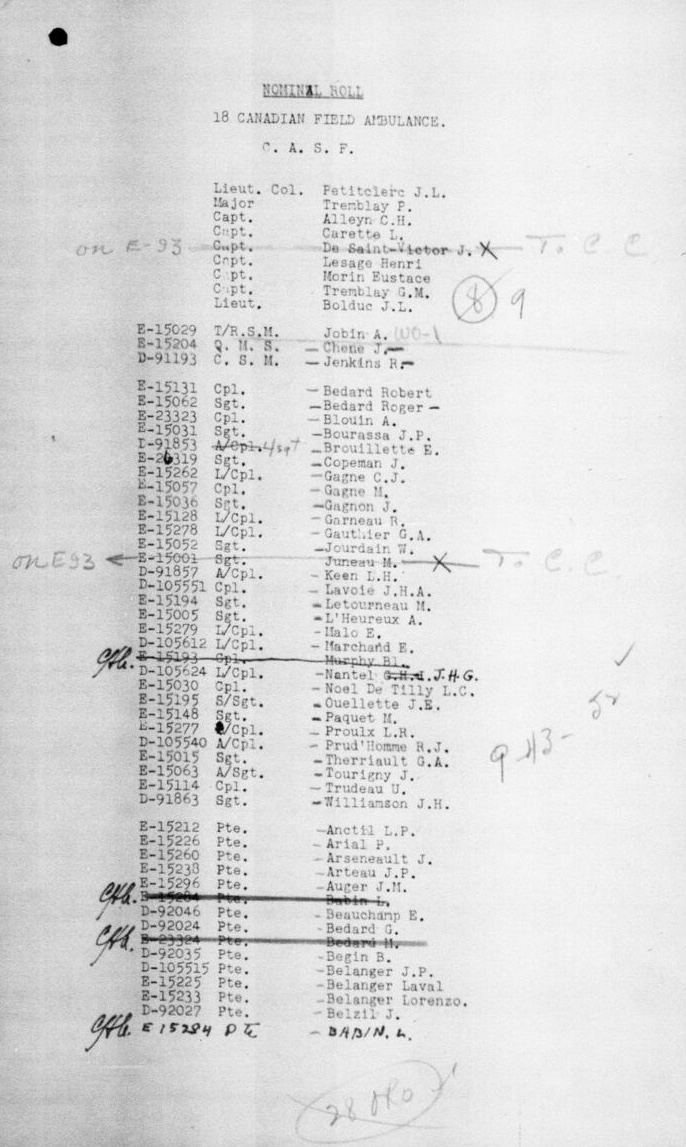 NOMINAL ROLL
18 CANADIAN FIELD AMBULANCE.
C. A. S. F.
Lieut. Col. Petitclerc J.L.
Major Tremblay P.
Capt. Alleyn C.H.
Capt. Carette L.
on E-93 Capt. De Saint-Victor J. X To C C
Capt. Lesage Henri
Capt. Morin Eustace
Capt. Tremblay G.M.
Lieut. Bolduc J.L. 8 9
E-15029 T/R.S.M. Jobin A. WO-1
E-15204 Q. M. S. - Chene J.-
D-91193 C. S. M. - Jenkins R.-
E-15131 Cpl. - Bedard Robert
E-15062 Sgt. - Bedard Roger -
E-23323 Cpl. - Blouin A.
E-15031 Sgt. - Bourassa J.P.
D-91853 A/Cpl. L/Sgt - Brouillette E.
E-26319 Sgt. - Copeman J.
E-15262 L/Cpl. - Gagne C.J.
E-15057 Cpl. - Gagne M.
E-15036 Sgt. - Gagnon J.
E-15128 L/Cpl. - Garneau R.
E-15278 L/Cpl. - Gauthier G.A.
E-15052 Sgt. - Jourdain W.
on E93 E-15001 Sgt. Juneau M. X To C.C
D-91857 A/Cpl. - Keen L.H.
D-105551 Cpl. - Lavoie J.H.A.
E-15194 Sgt. - Letourneau M.
E-15005 Sgt. - L'Heureux A.
E-15279 L/Cpl. - Malo E.
D-105612 L/Cpl. - Marchand E.
E-15193 Cpl. Murphy Bl.
D-105624 L/Cpl. - Nantel G.H.J. J.H.G.
E-15030 Cpl. - Noel De Tilly L.C.
E-15195 S/Sgt. - Ouellette J.E.
E-15148 Sgt. - Paquet M.
E-15277 /Cpl. - Proulx L.R.
D-105540 A/Cpl. - Prud'Homme R.J.
E-15015 Sgt. - Therriault G.A.
E-15063 A/Sgt. - Tourigny J.
E-15114 Cpl. - Trudeau U.
D-91863 Sgt. - Williamson J.H.
E-15212 Pte. - Anctil L.P.
E-15226 Pte. - Arial P.
E-15260 Pte. - Arseneault J.
E-15238 Pte. - Arteau J.P.
E-15296 Pte. - Auger J.M.
E-15284 Pte. Babin L.
D-92046 Pte. - Beauchamp E.
D-92024 Pte. - Bedard G.
E-23324 Pte. Bedard M.
D-92035 Pte. - Begin B.
D-105515 Pte. - Belanger J.P.
E-15225 Pte. - Belanger Laval
E-15233 Pte. - Belanger Lorenzo.
D-92027 Pte. - Belzil J.
E 15284 Pte - BABIN. L.
28 ORO